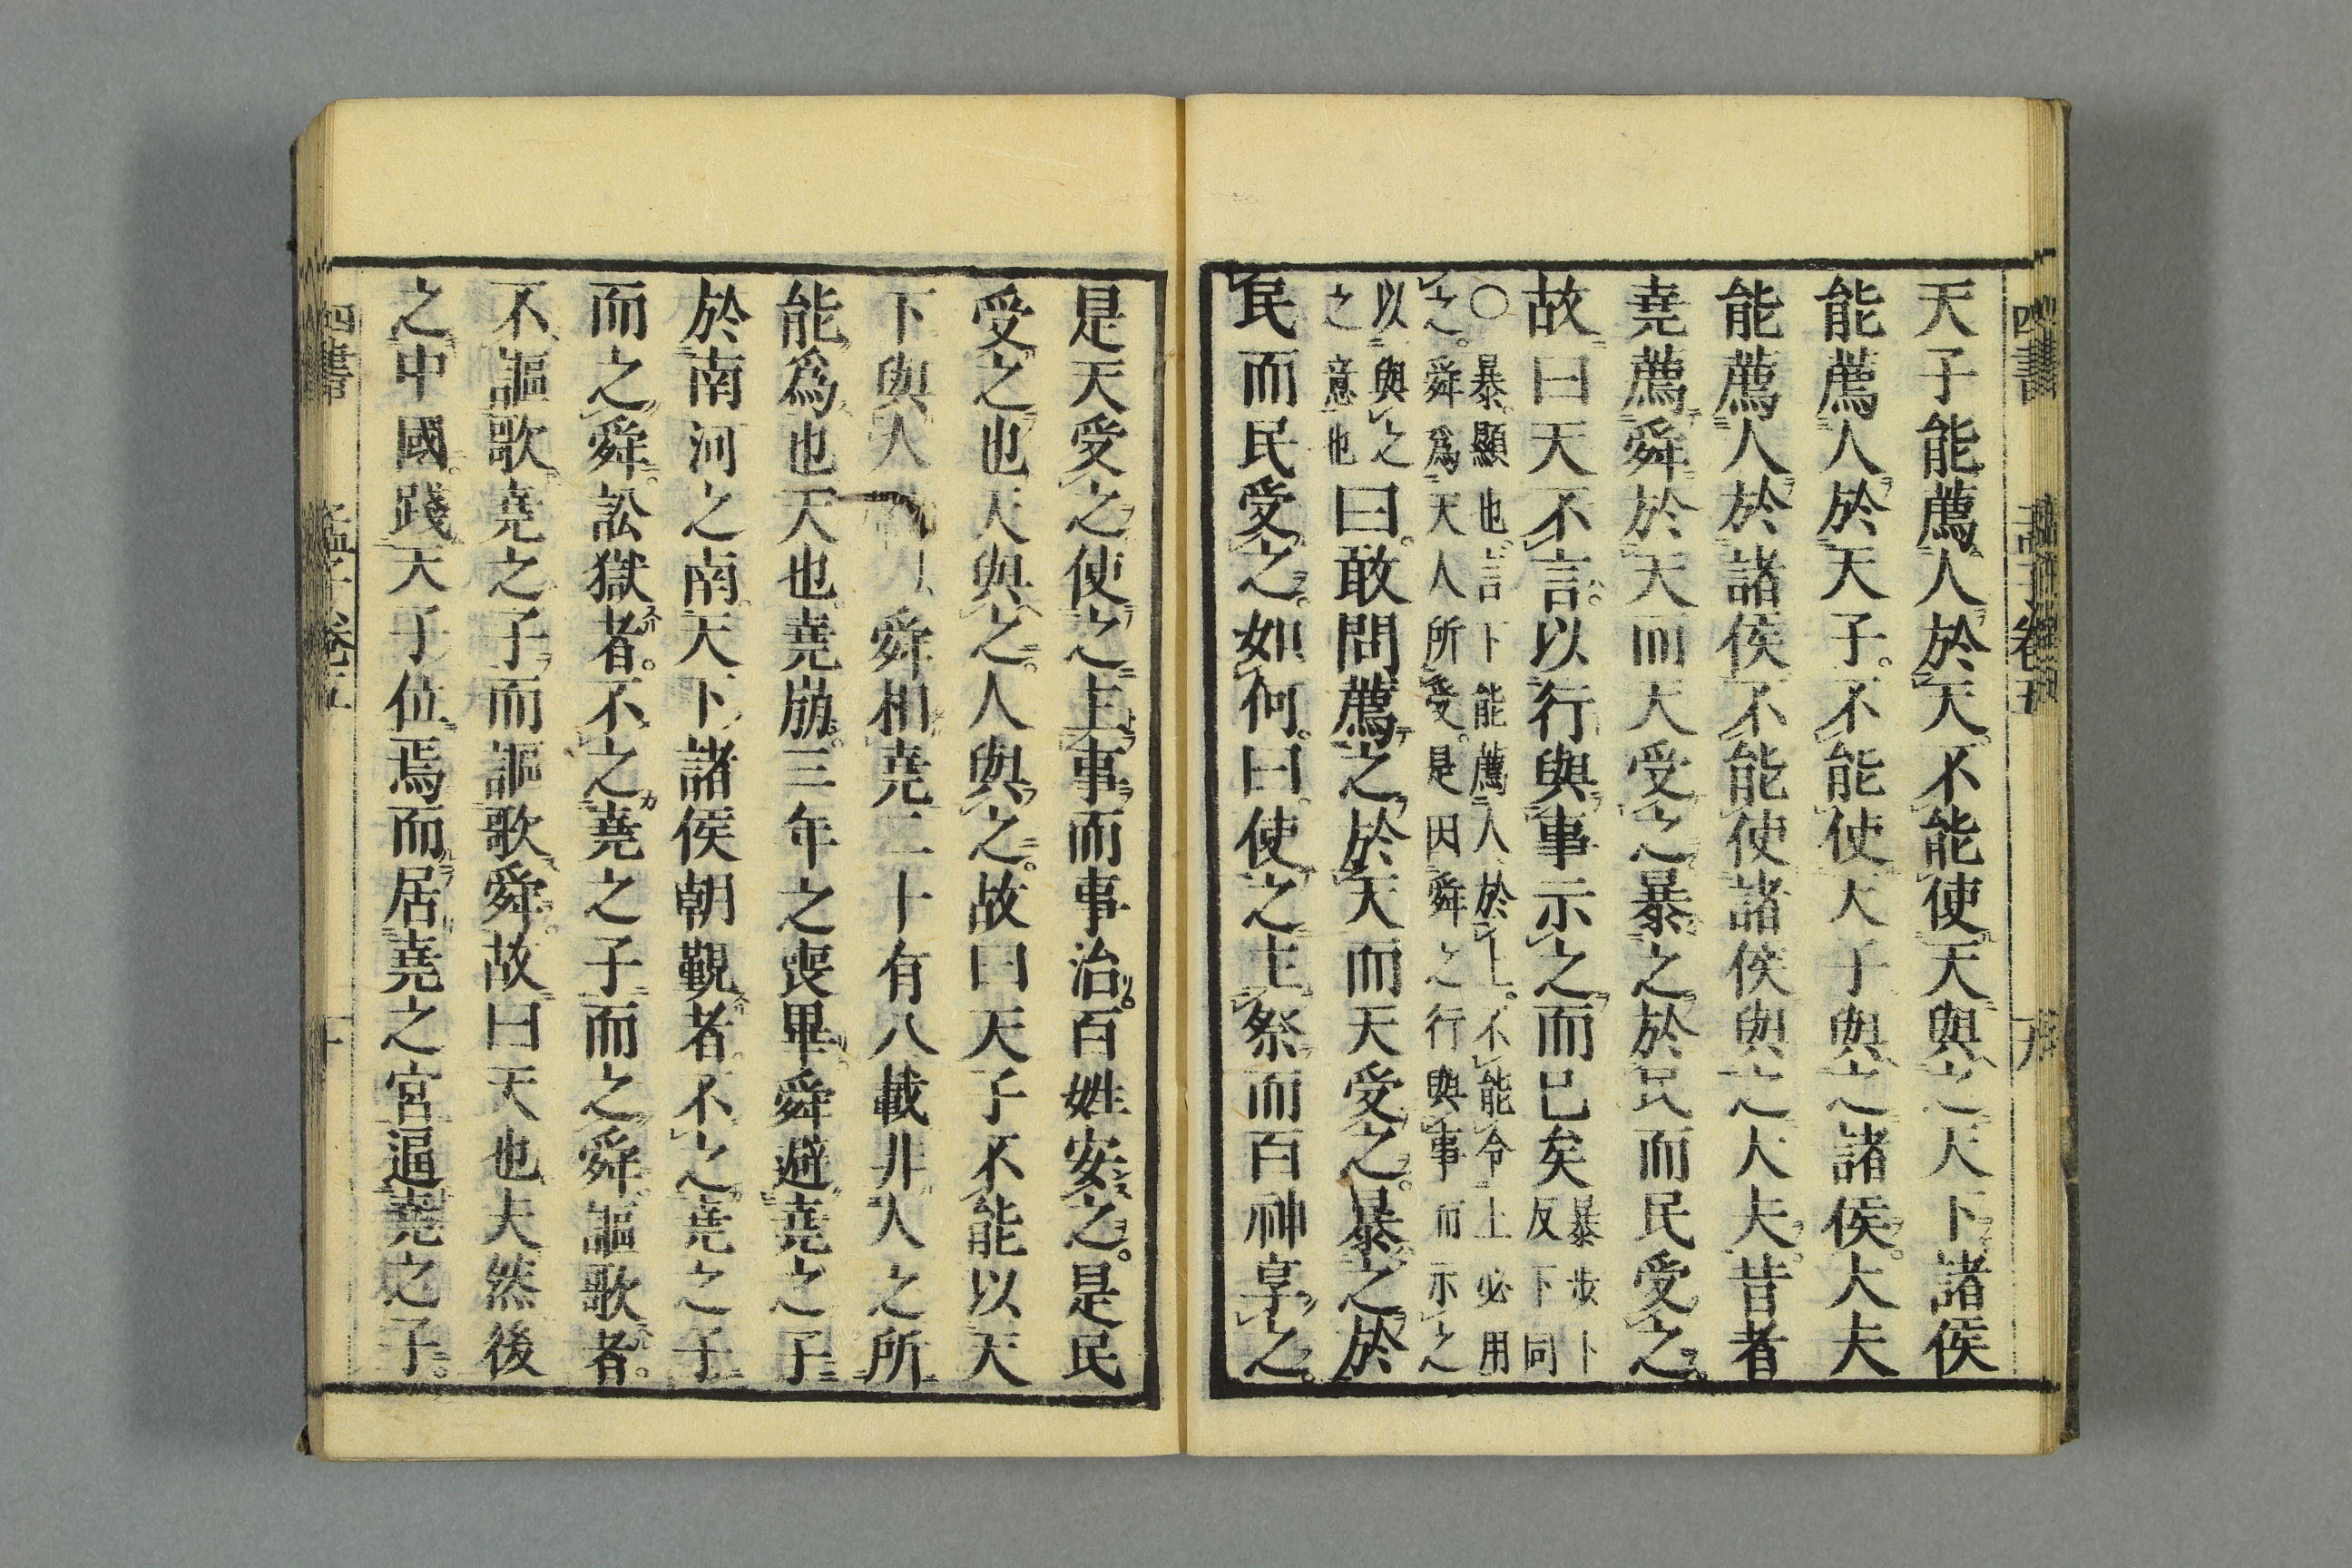 天子能薦人於天不能使天與之天下諸侯
能薦人於天子不能使天子與之諸侯大夫
能薦人於諸侯不能使諸侯與之大夫昔者
堯薦舜於天而天受之暴之於民而民受之
故曰天不言以行與事示之而已矣
暴步卜
反下同
○暴顯也言下能薦人於上不能令上必用
之舜爲天人所受是因舜之行與事而示之
以與之
之意也
曰敢問薦之於天而天受之暴之於
民而民受之如何曰使之主祭而百神享之
是天受之使之主事而事治百姓安之是民
受之也天與之人與之故曰天子不能以天
下與人舜相堯二十有八載非人之所
能爲也天也堯崩三年之喪畢舜避堯之子
於南河之南天下諸侯朝覲者不之堯之子
而之舜訟獄者不之堯之子而之舜謳歌者
不謳歌堯之子而謳歌舜故曰天也夫然後
之中國踐天子位焉而居堯之宮逼堯之子
四書 孟子卷五 十